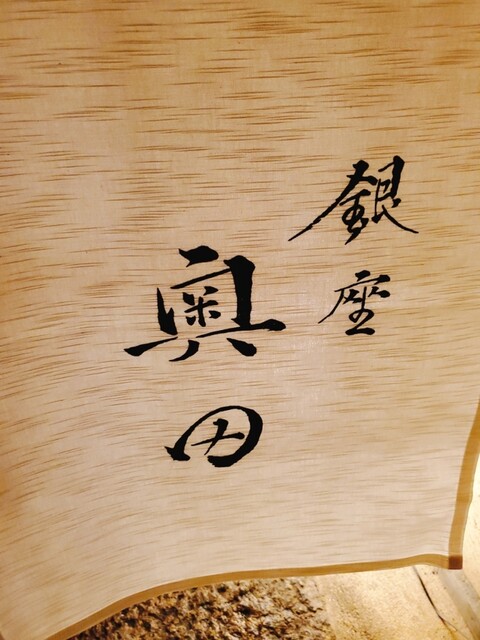 銀座
奥田